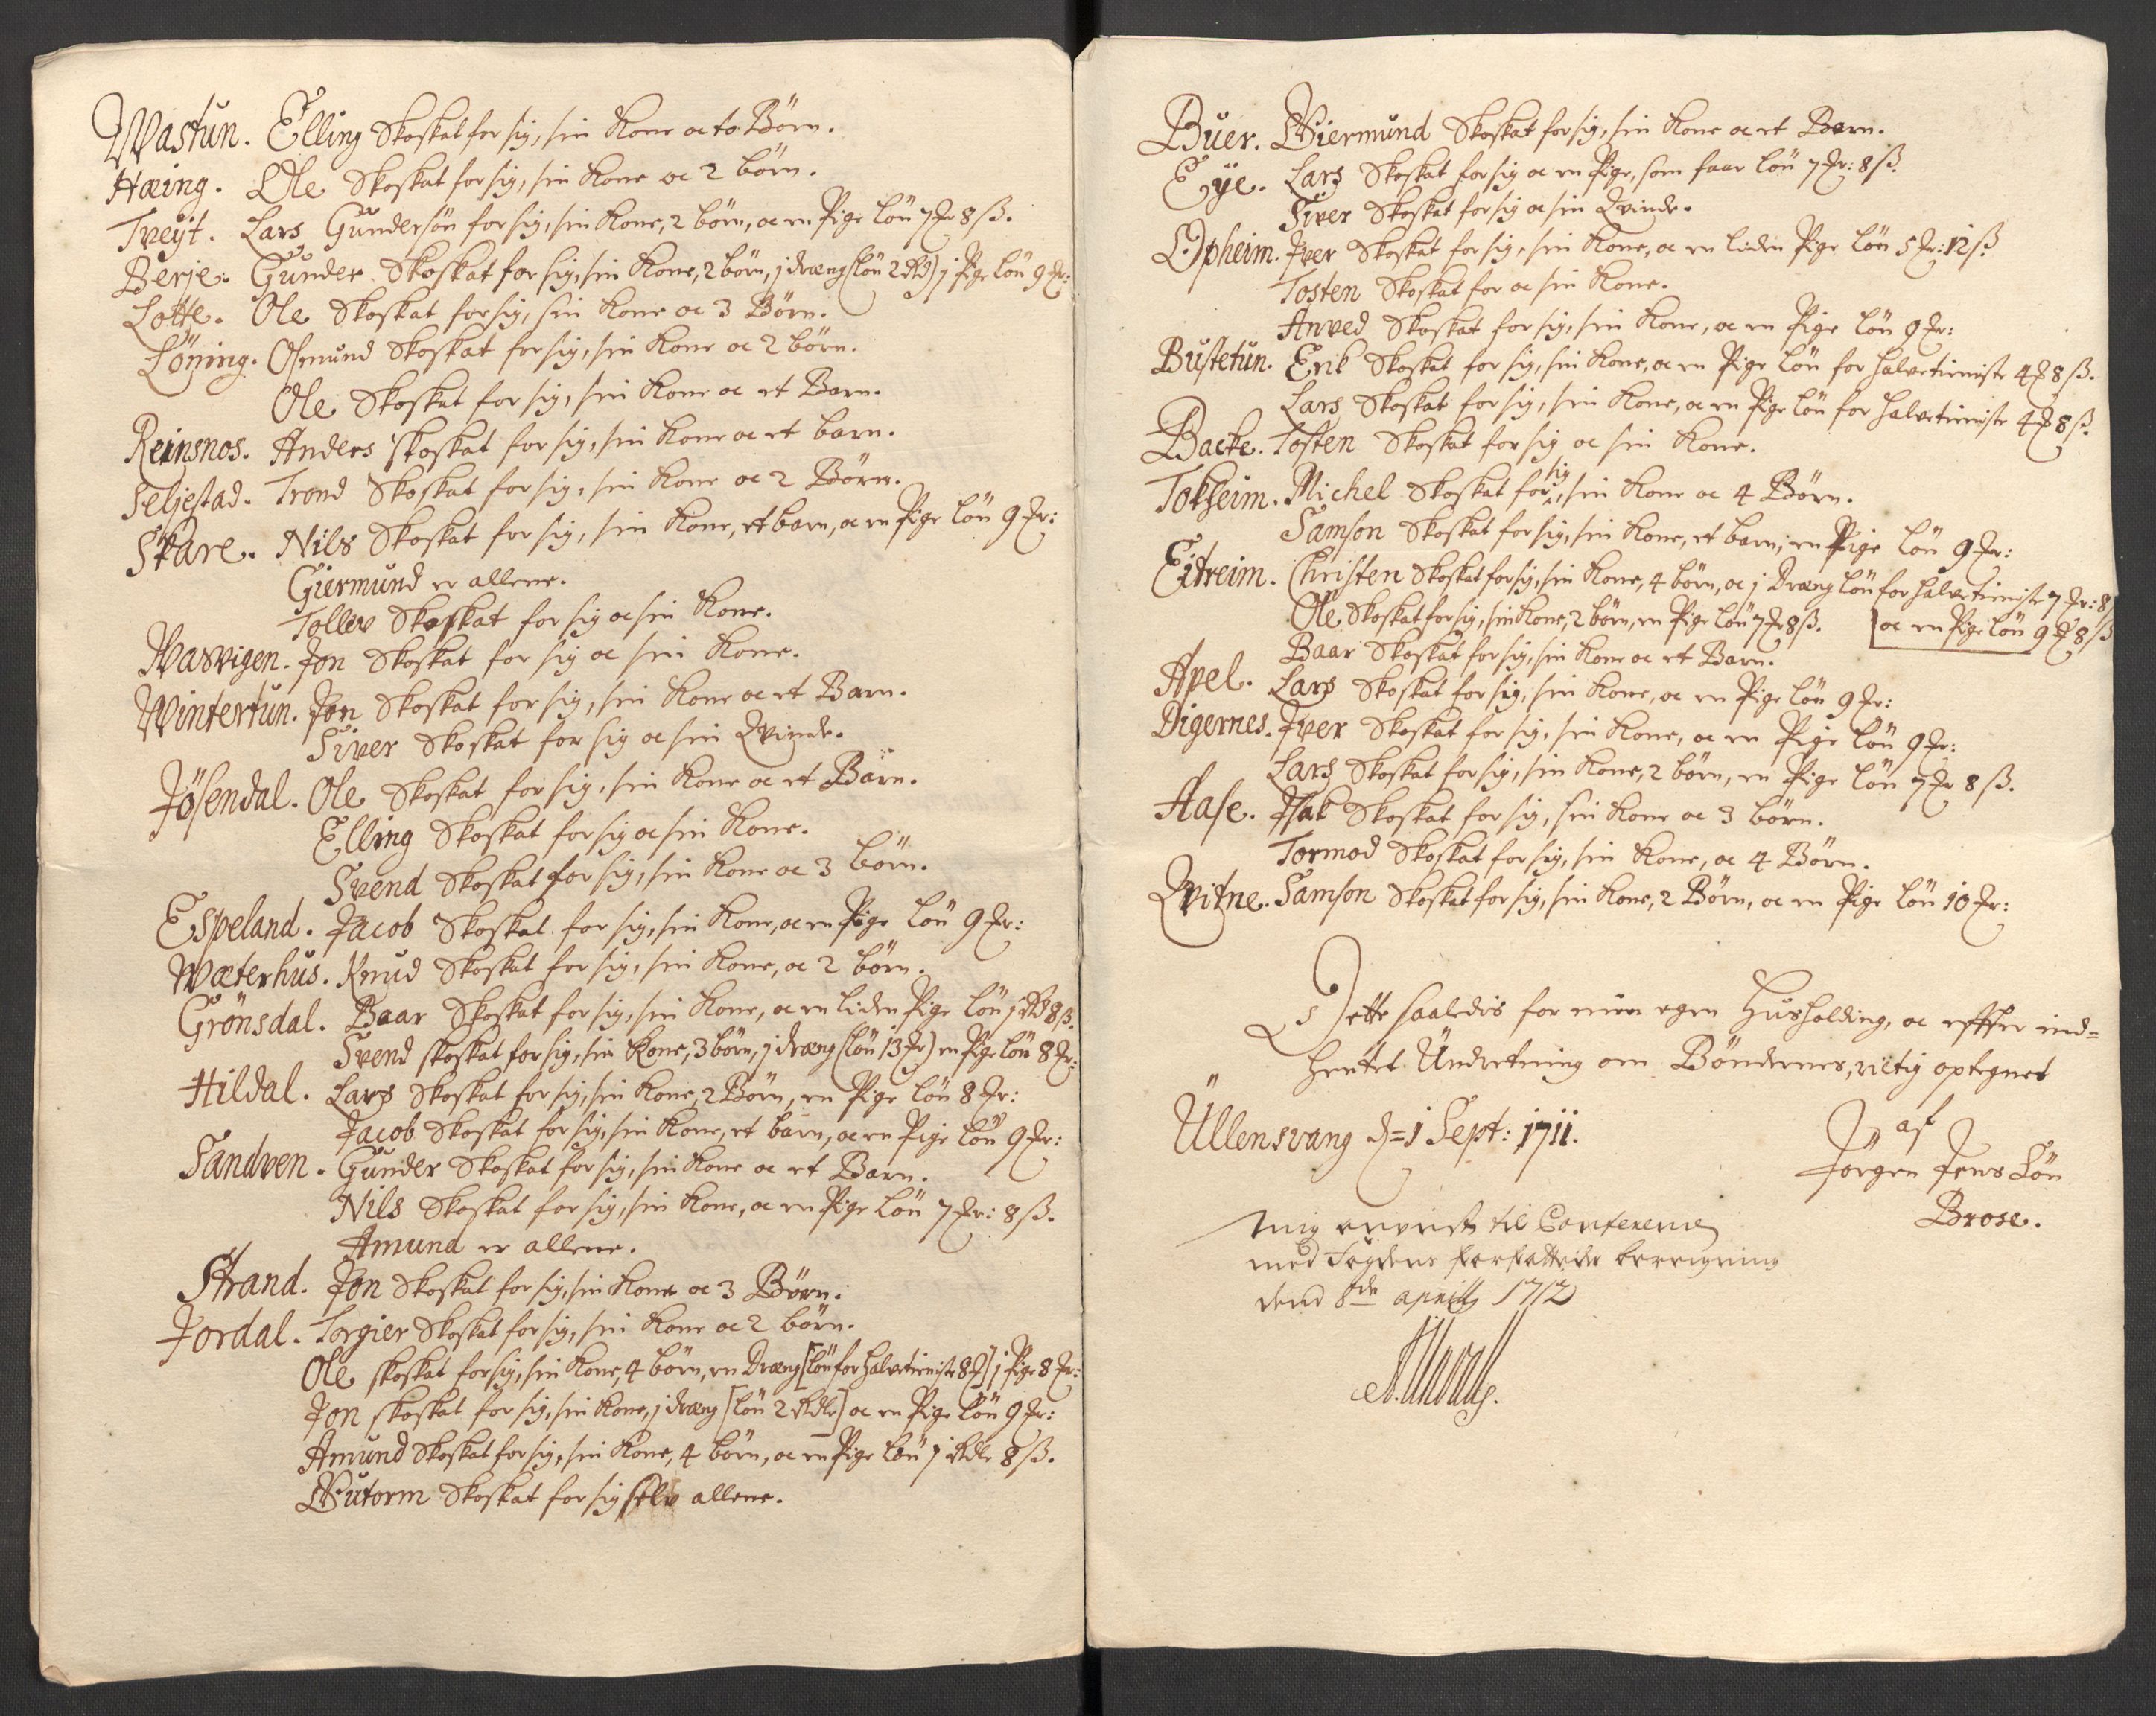 Wastun. Elling Skoskat for sig, sin Kone oc to Börn.
Hæing. Ole Skoskat for sig, sin Kone oc 2 börn.
Tveyt. Lars Gundersön for sig, sin Kone, 2 börn, oc en Pige lön 7 Zr 8 ß.
Berje. Gunder Skoskat for sig, sin Kone, 2 börn, j dræng (lön 2 Rd) j Pige lön 9 Zr:
Lotte. Ole Skoskat for sig, sin Kone oc 3 Börn.
Löning. Osmund Skoskat for sig, sin Kone oc 2 börn.
Ole Skoskat for sig, sin Kone oc et Barn.
Reinsnos. Anders skoskat for sig, sin Kone oc et barn.
Seljestad. Trond Skoskat for sig, sin Kone oc 2 Börn.
Skare. Nils Skoskat for sig, sin Kone, et barn, oc en Pige lön 9 Zr:
Giermund er allene.
Tollev Skoskat for sig oc sin Kone.
Wasvigen. Jon Skoskat for sig oc sin Kone.
Wintertun. Jon Skoskat for sig, sin Kone oc et Barn.
Siver Skoskat for sig oc sin Qvinde.
Jösendal. Ole Skoskat for sig, sin Kone oc et Barn.
Elling Skoskat for sig oc sin Kone.
Svend Skoskat for sig, sin Kone oc 3 börn.
Espeland. Jacob Skoskat for sig, sin Kone, oc en Pige lön 9 Zr:
Wæterhus. Knud Skoskat for sig, sin Kone, oc 2 börn.
Grönsdal. Baar Skoskat for sig, sin Kone, oc en liden Pige lön j Rd 8 ß.
Svend skoskat for sig, sin Kone, 3 börn, j dræng (lön 13 Zr) en Pige lön 8 Zr:
Hildal. Lars Skoskat for sig, sin Kone, 2 Börn, en Pige lön 8 Zr:
Jacob Skoskat for sig, sin Kone, et barn, oc en Pige lön 9 Zr:
Sandven. Gunder Skoskat for sig, sin Kone oc et Barn.
Nils Skoskat for sig, sin Kone, oc en Pige lön 7 Zr: 8 ß.
Amund er allene.
Strand. Jon Skoskat for sig, sin Kone oc 3 Börn.
Jordal. Torgier Skoskat for sig, sin Kone oc 2 börn.
Ole skoskat for sig, sin Kone, 4 börn, en Dræng [lön for halvetieniste 8 Z] j Pige 8 Zr:
Jon skoskat for sig, sin Kone, j dræng [lön 2 Rdlr] oc en Pige lön 9 Zr:
Amund Skoskat for sig, sin Kone, 4 börn, oc en Pige lön j Rdlr 8 ß.
Gutorm Skoskat for sig selv allene.
Buer. Giermund Skoskat for sig, sin Kone oc et Barn.
Eye. Lars Skoskat for sig oc en Pige, som faar lön 7 Zr: 8 ß.
Siver Skoskat for sig oc sin Qvinde.
Opheim. Iver Skoskat for sig, sin Kone, oc en liden Pige lön 5 Zr: 12 ß
Tosten Skoskat for oc sin Kone.
Anved Skoskat for sig, sin Kone, oc en Pige lön 9 Zr:
Bustetun. Erik Skoskat for sig, sin Kone, oc en Pige lön for halvetieniste 4 Z 8 ß.
Lars Skoskat for sig, sin Kone, oc en Pige lön for halvetieniste 4 Z 8 ß.
Backe. Tosten Skoskat for sig oc sin Kone.
Tokheim. Michel Skoskat for sig, sin Kone oc 4 Börn.
Samson Skoskat for sig, sin Kone, et barn, en Pige lön 9 Zr:
Eitreim. Christen Skoskat for sig, sin Kone, 4 börn, oc j Dræng lön for halvetieniste 7 Zr: 8
Ole Skoskat for sig, sin Kone, 2 börn, en Pige lön 7 Zr 8 ß. oc en Pige lön 9 Z 8 ß
Baar Skoskat for sig, sin Kone oc et Barn.
Apel. Lars Skoskat for sig, sin Kone, oc en Pige lön 9 Zr:
Digernes. Iver Skoskat for sig, sin Kone, oc en Pige lön 9 Zr:
Lars Skoskat for sig, sin Kone, 2 börn, en Pige lön 7 Zr 8 ß.
Hase. Isak Skoskat for sig, sin Kone oc 3 börn.
Tormod Skoskat for sig, sin Kone, oc 4 Börn.
Qvitne. Samson Skoskat for sig, sin Kone, 2 Börn, oc en Pige lön 10 Zr:
Dette saaledis for min egen Husholding, oc effter ind-
hentet Underretning om Böndernes, rictig optegnet
Üllensvang d=1 Sept: 1711.
af
Jörgen Jens Sön
Brose.
Mig anvist til Conference
med Fogdens forfattede
dend 8de aprilly 1712